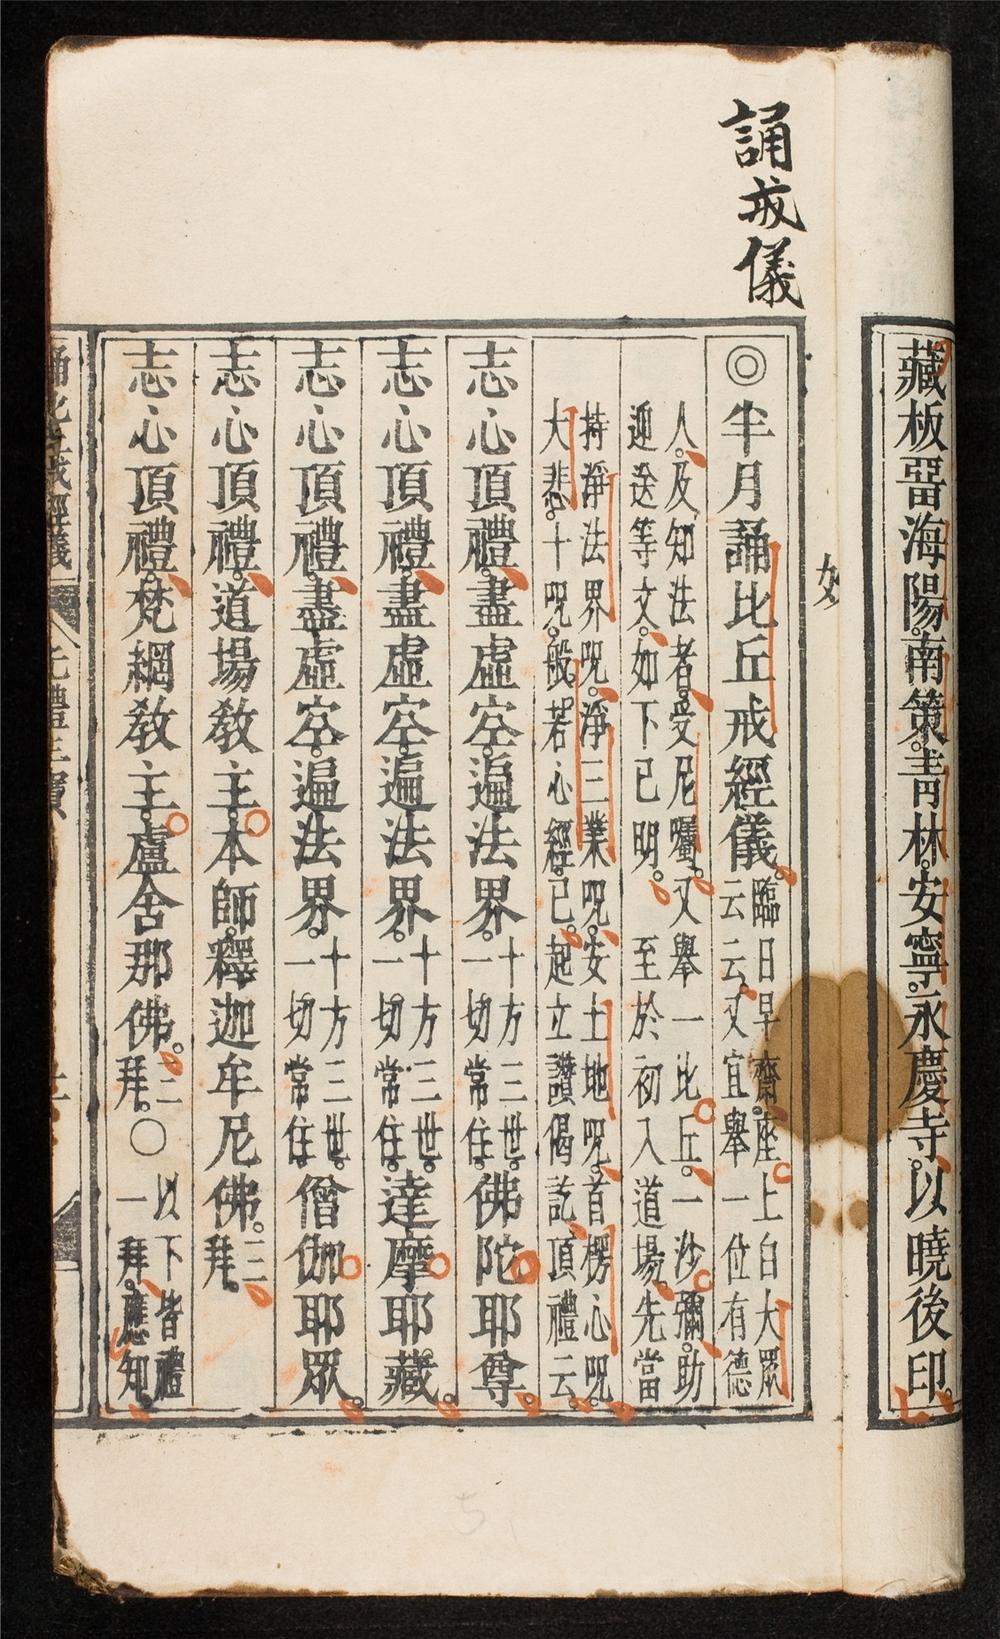 藏板畱海陽南策青林安寧永慶寺以曉後印
誦戒儀
◎半月誦比丘戒經儀。臨日早齋座上白大眾
云云又宜舉一位有德
人及知法者。受尼囑。又舉一比丘。一沙彌。助
迎送等文。如下已明。至於初入道場。先當
持淨法界呪。淨三業呪。安土地呪。首楞心呪。
大悲。十呪。般若心經。已。起立讚偈訖。頂禮云。
志心頂禮。盡虛空。遍法界。十方三世。一切常住。佛陀耶尊。
志心頂禮。盡虛空。遍法界。十方三世。一切常住。達摩耶藏。
志心頂禮。盡虛空。遍法界。十方三世。一切常住。僧伽耶眾。
志心頂禮。道場教主。本師釋迦牟尼佛。三拜。
志心頂禮。梵綱教主。盧舍那佛。三拜。○以下皆禮一拜。應知。
誦比丘戒經儀 先禮三寶